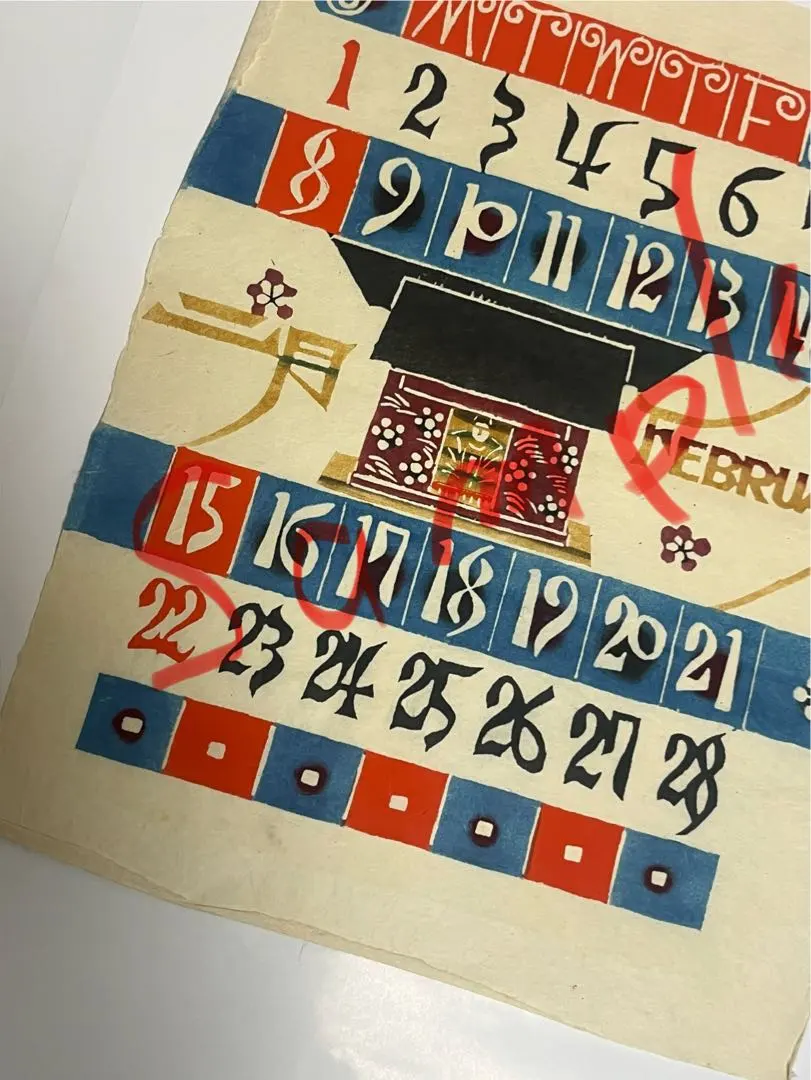 M T W T F
1 2 3 4 5 6
8 9 10 11 12 13 14
二月
FEBRU
15 16 17 18 19 20 21
22 23 24 25 26 27 28
Sample